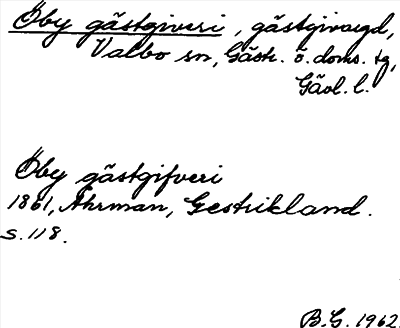 Öby gästgiveri, gästgivaregd,
Valbo sn, Gästr. ö. doms. tg,
Gävl. l.
Öby gästgifveri
1861, Åhrman, Gestrikland.
s. 118.
B.G. 1962.